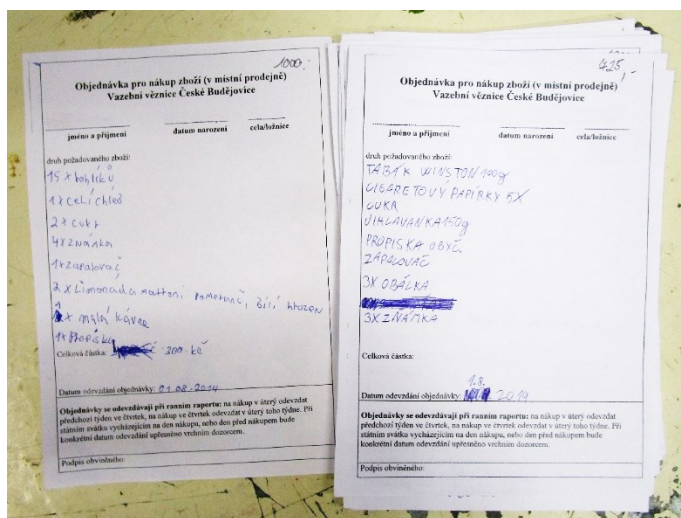 1000,-
Objednávka pro nákup zboží (v místní prodejně)
Vazební věznice České Budějovice
jméno a příjmení datum narození cela/ložnice
druh požadovaného zboží:
15 x rohlíků
1 x celí chleb
2 x cukr
4x známka
1x zapalovač
2 x Limonada mattoni pomeranč, bílí hrozen
1 x malá káva
1x Propiska
Celková částka: 300 kč
Datum odevzdání objednávky: 01.08.2019
Objednávky se odevzdávají při ranním raportu: na nákup v úterý odevzdat
předchozí týden ve čtvrtek, na nákup ve čtvrtek odevzdat v úterý toho týdne. Při
státním svátku vycházejícím na den nákupu, nebo den před nákupem bude
konkrétní datum odevzdání upřesněno vrchním dozorcem.
Podpis obviněného:
425,-
Objednávka pro nákup zboží (v místní prodejně)
Vazební věznice České Budějovice
jméno a příjmení datum narození cela/ložnice
druh požadovaného zboží:
TABÁK WINSTON 100g
CIGARETOVÝ PAPÍRKY 5X
CUKR
JIHLAVANKA 150g
PROPISKA OBYČ.
ZAPALOVAČ
3X OBÁLKA
3X ZNÁMKA
Celková částka:
1.8.
Datum odevzdání objednávky: 2019
Objednávky se odevzdávají při ranním raportu: na nákup v úterý odevzdat
předchozí týden ve čtvrtek, na nákup ve čtvrtek odevzdat v úterý toho týdne. Při
státním svátku vycházejícím na den nákupu, nebo den před nákupem bude
konkrétní datum odevzdání upřesněno vrchním dozorcem.
Podpis obviněného: